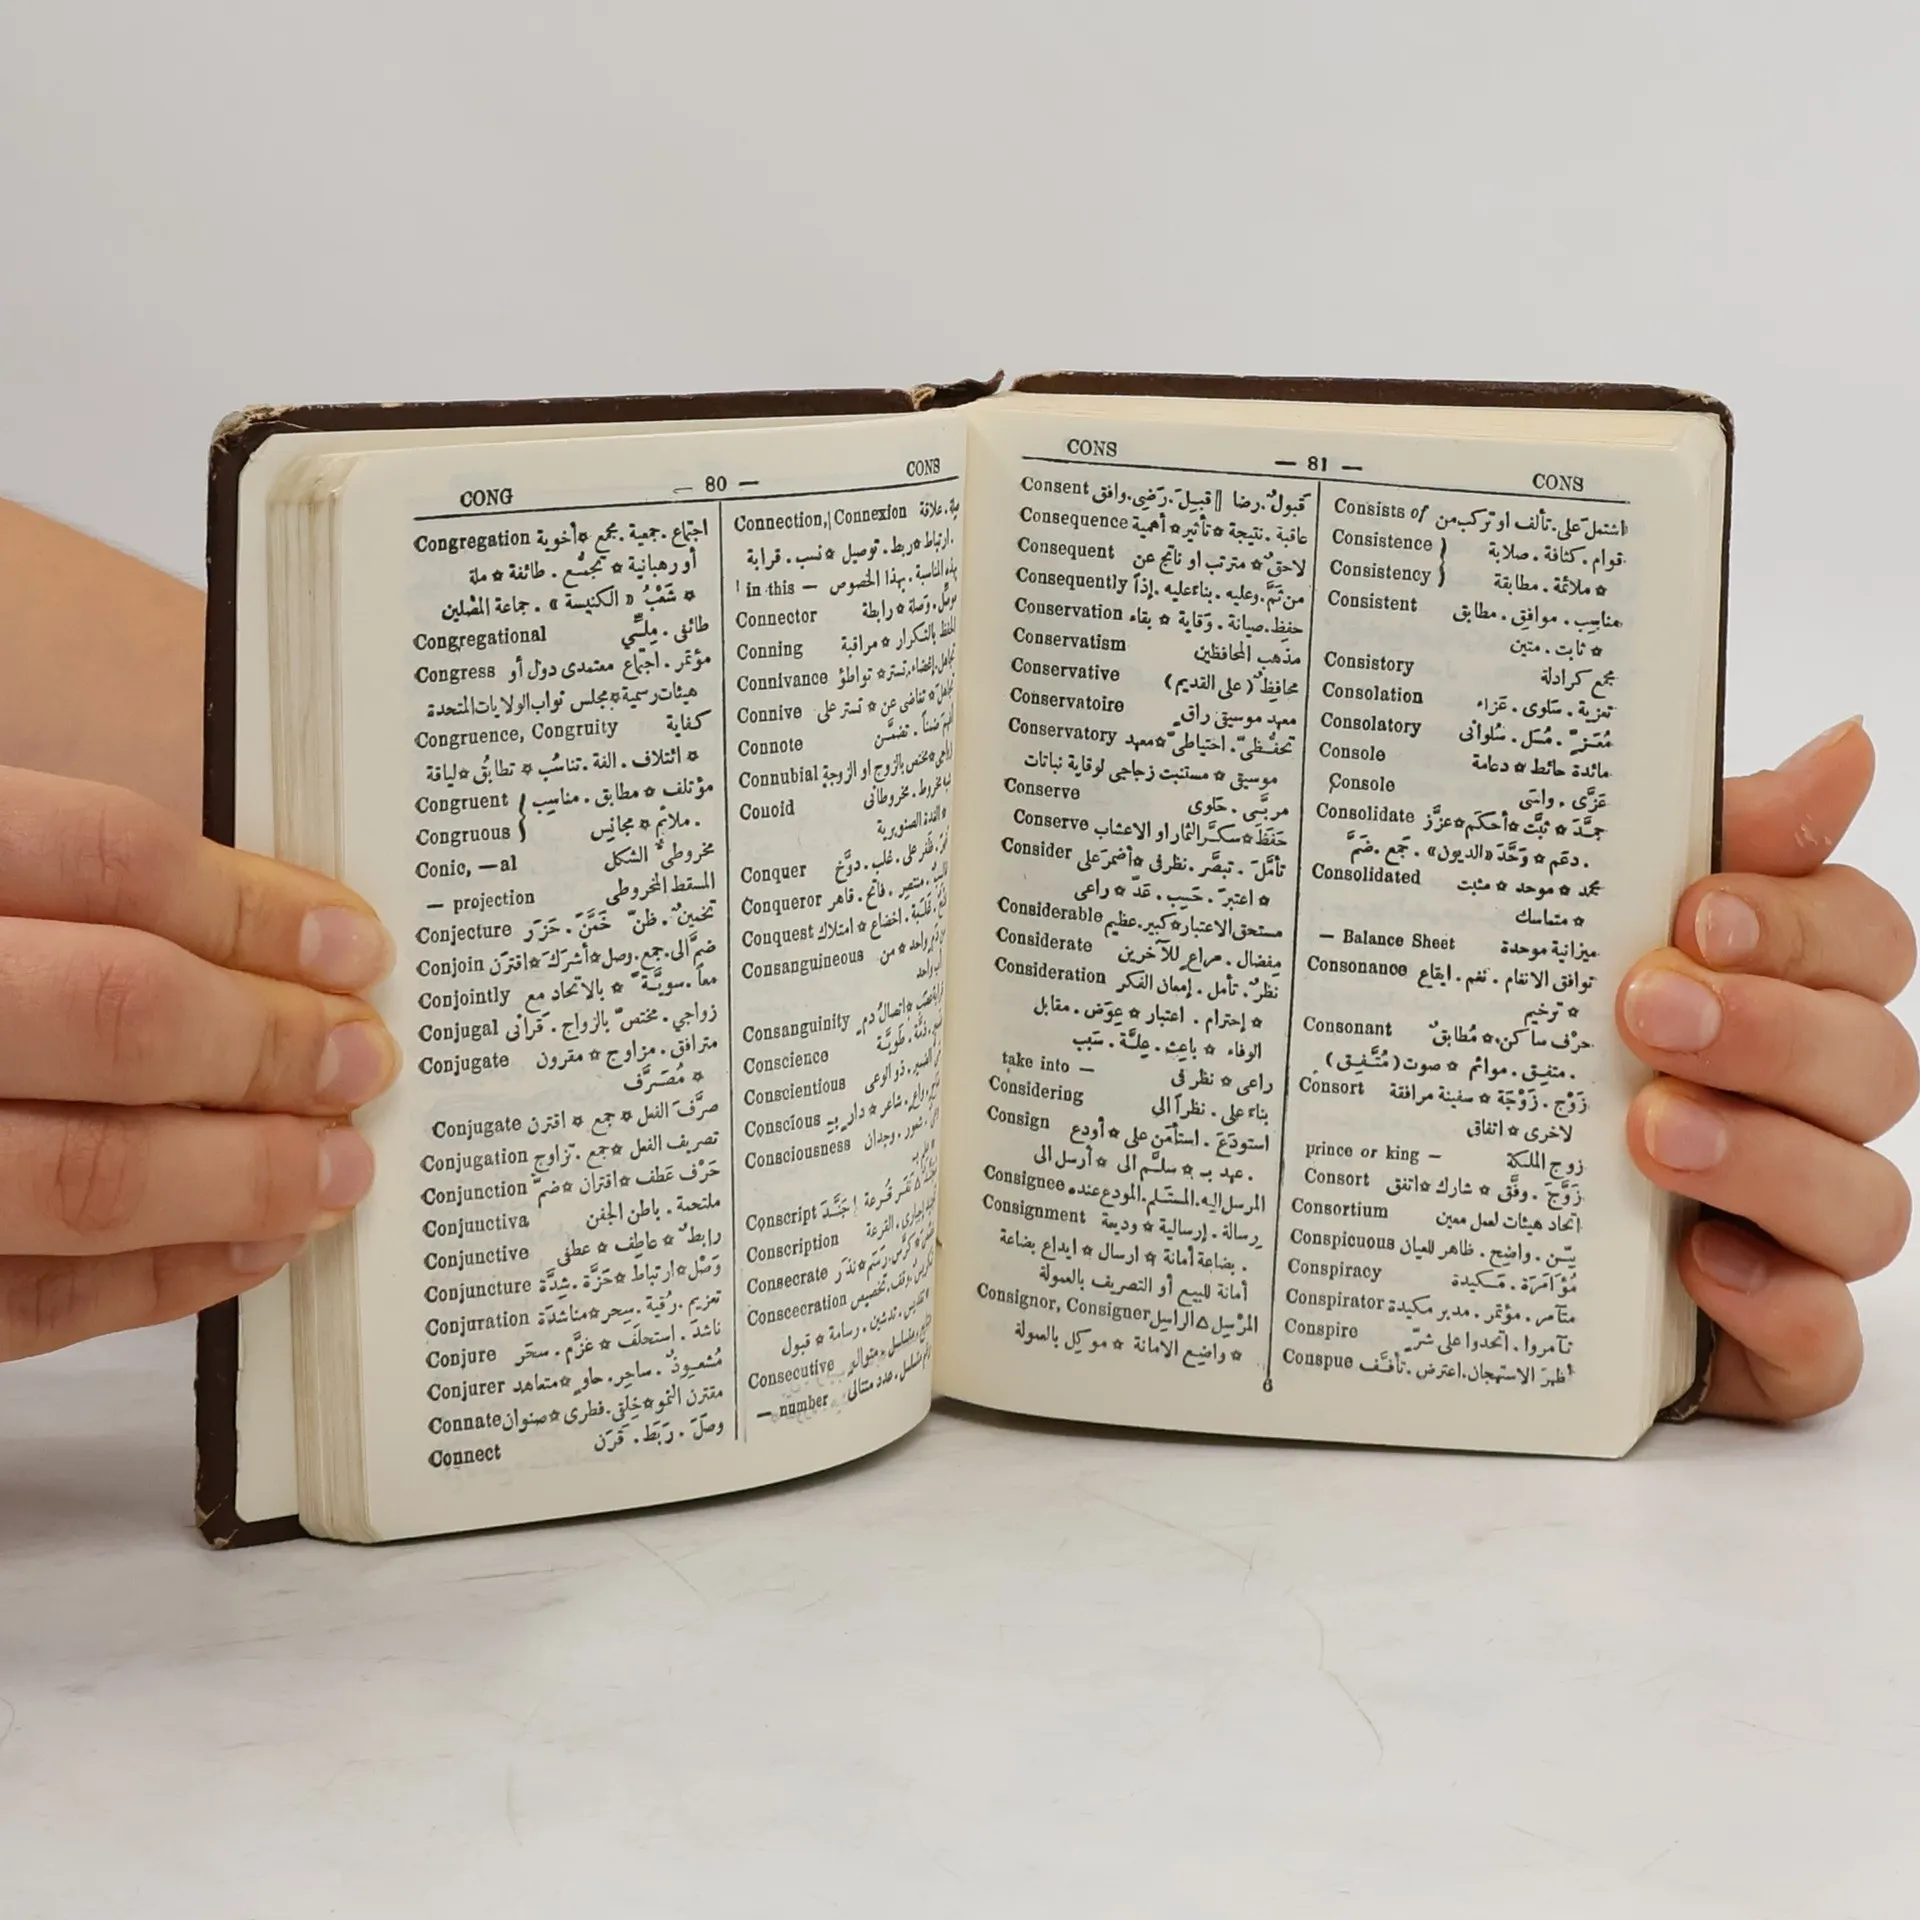 CONG — 80 — CONS
Congregation اجتماع. جمعية. مجمع ☆ أخوية
أو رهبانية ☆ تجمُّع. طائفة ☆ ملة
☆ شَعْبُ «الكنيسة». جماعة المصلين
Congregational طائفي. مِلّي
Congress مؤتمر. اجتماع معتمدى دول أو
هيئات رسمية ☆ مجلس نواب الولايات المتحدة
Congruence, Congruity كفاية
☆ ائتلاف. الفة. تناسُب ☆ تطابُق ☆ لياقة
Congruent } مؤتلف ☆ مطابق. مناسِب
Congruous } . ملائم ☆ مجانِس
Conic, —al مخروطى الشكل
— projection المسقط المخروطى
Conjecture تخمين. ظنّ خَمَّنَ. حَزَرَ
Conjoin ضمَّ الى. جمع. وصل ☆ أشرَكَ ☆ اقترَن
Conjointly معاً. سويَّةً ☆ بالاتحاد مع
Conjugal زواجي. مختصّ بالزواج. قرانى
Conjugate مترافق. مزاوج ☆ مقرون
☆ مُصَرَّف
Conjugate صرَّفَ الفعل ☆ جمع ☆ اقترن
Conjugation تصريف الفعل ☆ جمع. تزاوج
Conjunction حَرْف عَطف ☆ اقتران ☆ ضمّ
Conjunctiva ملتحمة. باطن الجفن
Conjunctive رابطٌ ☆ عاطِف ☆ عطفي
Conjuncture وَصْل ☆ ارتباط ☆ حَزَّة. شِدَّة
Conjuration تعزيم. رُقية. سِحر ☆ مناشَدَة
Conjure ناشَدَ. استحلَف ☆ عزَّم. سحَر
Conjurer مُشعوِذٌ. ساحِر. حاوٍ ☆ متعاهد
Connate مقترن النمو ☆ خِلقى. فطرى ☆ صنوان
Connect وصَلَ. رَبَطَ. قَرَن
Connection, Connexion صلة. علاقة
. ارتباط ☆ ربط. توصيل ☆ نسب. قرابة
in this — بهذه المناسبة. بهذا الخصوص
Connector موصِّل. وَصلة ☆ رابطة
Conning الحفظ بالتكرار ☆ مراقبة
Connivance تجاهل. إغضاء. تستر ☆ تواطؤ
Connive تجاهل ☆ تغاضى عن ☆ تستر على
Connote ضمناً. تضمَّن
Connubial مختص بالزوج او الزوجة
Conoid شبه مخروط. مخروطانى
☆ الغدة الصنوبرية
Conquer ظفر على. غلب. دوَّخ
Conqueror غالب. منتصِر. فاتح. قاهر
Conquest غَلَبة. اخضاع ☆ امتلاك
Consanguineous من دم واحد ☆ من
أب واحد
Consanguinity اتصالُ دم
Conscience ذمَّة. طَوِيَّة
Conscientious الضمير. ذو الوعى
Conscious واعٍ. شاعر ☆ دارٍ بـ
Consciousness شعور. وجدان
Conscript نَفَر قُرعة | جَنَّدَ
Conscription القرعة
Consecrate كَرَّس. رَسَم ☆ نذَر
Conseecration تكريس. وقف. تخصيص
☆ تقديس. تدشين. رسامة ☆ قبول
Consecutive متسلسل. متوالٍ
— number رقم متسلسل. عدد متتالى
CONS — 81 — CONS
Consent قَبولٌ. رضا || قبِلَ. رَضِى. وافق
Consequence عاقبة. نتيجة ☆ تأثير ☆ أهمية
Consequent لاحق ☆ مترتب او ناتج عن
Consequently من ثَمَّ. وعليه. بناءً عليه. إذاً
Conservation حفظ. صيانة. وَقاية ☆ بقاء
Conservatism مذهب المحافظين
Conservative محافظٌ (على القديم)
Conservatoire معهد موسيقى راقٍ
Conservatory تحفُّظىّ. احتياطىّ ☆ معهد
موسيقى ☆ مستنبت زجاجى لوقاية نباتات
Conserve مربَّى. حَلوى
Conserve حَفَظَ ☆ سكَّرَ الثمار او الاعشاب
Consider تأمَّلَ. تبصَّر. نظر فى ☆ أضمرَ على
☆ اعتبرَ. حَسِب. عَدَّ ☆ راعى
Considerable مستحق الاعتبار ☆ كبير. عظيم
Considerate مِفضال. مراعٍ للآخرين
Consideration نظرٌ. تأمل. إمعان الفكر
☆ إحترام. اعتبار ☆ عِوَض. مقابل
الوفاء ☆ باعِث. عِلَّة. سَبَب
take into — راعى ☆ نظر فى
Considering بناءً على. نظراً الى
Consign استودَعَ. استأمَن على ☆ أودع
. عهد بـ ☆ سلَّم الى ☆ أرسل الى
Consignee المرسل اليه. المستَلم. المودع عنده
Consignment رسالة. إرسالية ☆ وديعة
. بضاعة أمانة ☆ ارسال ☆ ايداع بضاعة
أمانة للبيع أو التصريف بالعمولة
Consignor, Consigner المُرْسِل △ الراسِل
☆ واضع الامانة ☆ موكل بالعمولة
6
Consists of اشتملَ على. تألف او تركب من
Consistence } قوام. كثافة. صلابة
Consistency } ☆ ملائمة. مطابقة
Consistent مناسِب. موافِق. مطابق
☆ ثابت. متين
Consistory مجمع كرادلة
Consolation تعزية. سَلوى. عَزاء
Consolatory مُعَزٍّ. مُسَلٍ. سُلوانى
Console مائدة حائط ☆ دعامة
Console عَزَّى. واسَى
Consolidate جمَّدَ ☆ ثبَّت ☆ أحكَم ☆ عزَّز
. دعَم ☆ وَحَّدَ «الديون». جَمع. ضَمَّ
Consolidated مجمد ☆ موحد ☆ مثبت
☆ متماسك
— Balance Sheet ميزانية موحدة
Consonance توافق الانغام. نغم. ايقاع
☆ ترخيم
Consonant حرْف ساكن ☆ مُطابقٌ
. متفِق. موائم ☆ صوت (مُتَّفِق)
Consort زَوْج. زَوْجَة ☆ سفينة مرافقة
لاخرى ☆ اتفاق
prince or king — زوج الملكة
Consort زَوَّجَ. وفَّق ☆ شارك ☆ اتفق
Consortium اتحاد هيئات لعمل معين
Conspicuous بيّن. واضح. ظاهر للعيان
Conspiracy مُؤامَرَة. مَكيدة
Conspirator متآمر. مؤتمر. مدبر مكيدة
Conspire تآمروا. اتحدوا على شرّ
Conspue أظهرَ الاستهجان. اعترض. تأفَّف